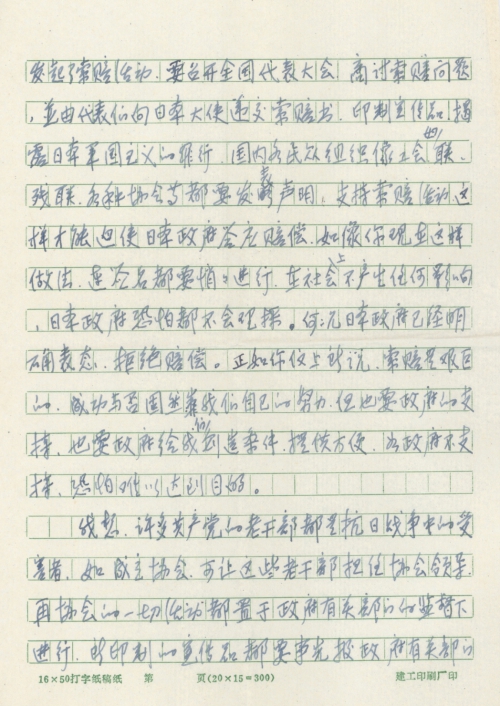 发起了索赔活动,要召开全国代表大会,商讨索赔问题
,並由代表们向日本大使递交索赔书,印制宣传品,揭
露日本军国主义的罪行,国内各民众组织像工会、妇联、
残联、各种协会等都要发表声明,支持索赔活动,这
样才能迫使日本政府答应赔偿。如像你现在这样
做法,连签名都要悄悄进行,在社会上不产生任何影响
,日本政府恐怕都不会理採。何况日本政府已经明
确表态,拒绝赔偿。正如你仪上所说,索赔是艰巨
的,成功与否固然靠我们自己的努力,但也要政府的支
持,也要政府给我们创造条件,提供方便,若政府不支
持,恐怕难以达到目的。
我想,许多共产党的老干部都是抗日战争中的受
害者,如成立协会,可让这些老干部担任协会领导,
再协会的一切活动都置于政府有关部门的监督下
进行,所印制的宣传品都要事先报政府有关部门
16×50打字纸稿纸 第 页(20×15=300) 建工印刷厂印